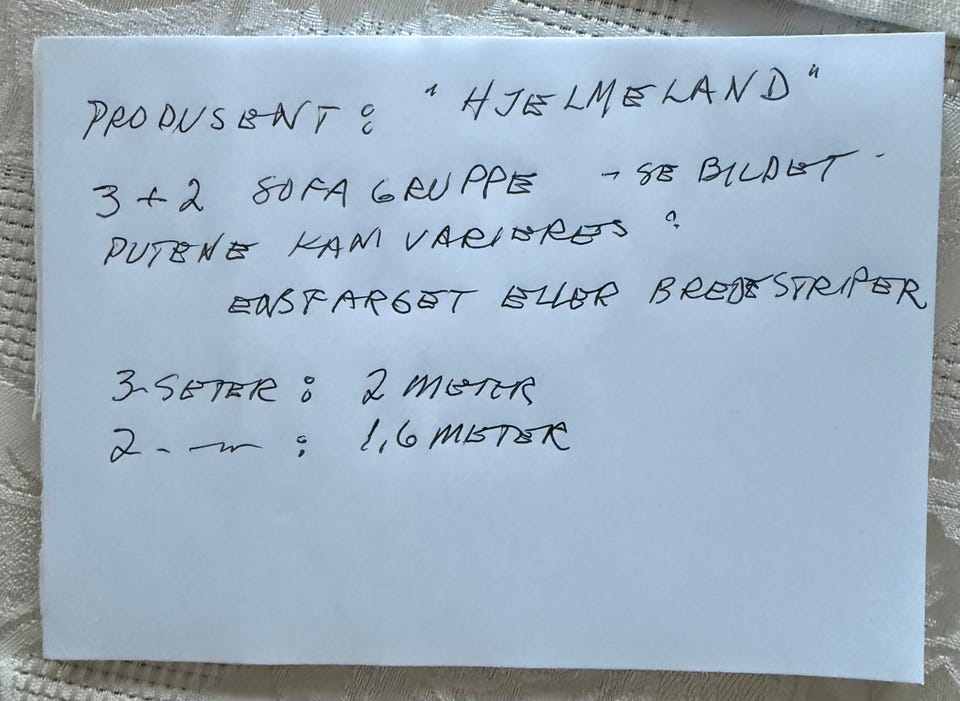 PRODUSENT : "HJELMELAND"
3 + 2 SOFAGRUPPE - SE BILDET
PUTENE KAN VARIERES :
ENSFARGET ELLER BREDE STRIPER
3-SETER : 2 METER
2 - -"- : 1,6 METER